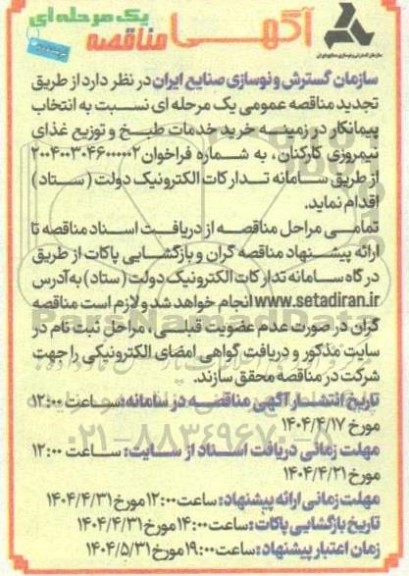 آگهی
مناقصه
یک مرحله ای
سازمان گسترش و نوسازی صنایع ایران
سازمان گسترش و نوسازی صنایع ایران در نظر دارد از طریق
تجدید مناقصه عمومی یک مرحله ای نسبت به انتخاب
پیمانکار در زمینه خرید خدمات طبخ و توزیع غذای
نیمروزی کارکنان، به شماره فراخوان ۲۰۰۴۰۰۳۰۴۶۰۰۰۰۰۲
از طریق سامانه تدارکات الکترونیک دولت (ستاد)
اقدام نماید.
تمامی مراحل مناقصه از دریافت اسناد مناقصه تا
ارائه پیشنهاد مناقصه گران و بازگشایی پاکات از طریق
درگاه سامانه تدارکات الکترونیک دولت (ستاد) به آدرس
www.setadiran.ir انجام خواهد شد و لازم است مناقصه
گران در صورت عدم عضویت قبلی، مراحل ثبت نام در
سایت مذکور و دریافت گواهی امضای الکترونیکی را جهت
شرکت در مناقصه محقق سازند.
تاریخ انتشار آگهی مناقصه در سامانه: ساعت ۱۲:۰۰
مورخ ۱۴۰۴/۴/۱۷
مهلت زمانی دریافت اسناد از سایت: ساعت ۱۲:۰۰
مورخ ۱۴۰۴/۴/۲۱
مهلت زمانی ارائه پیشنهاد: ساعت ۱۲:۰۰ مورخ ۱۴۰۴/۴/۳۱
تاریخ بازگشایی پاکات: ساعت ۱۴:۰۰ مورخ ۱۴۰۴/۴/۳۱
زمان اعتبار پیشنهاد: ساعت ۱۹:۰۰ مورخ ۱۴۰۴/۵/۳۱
ParsNamadData
۰۲۱-۸۸۳۴۹۶۷۰-۵